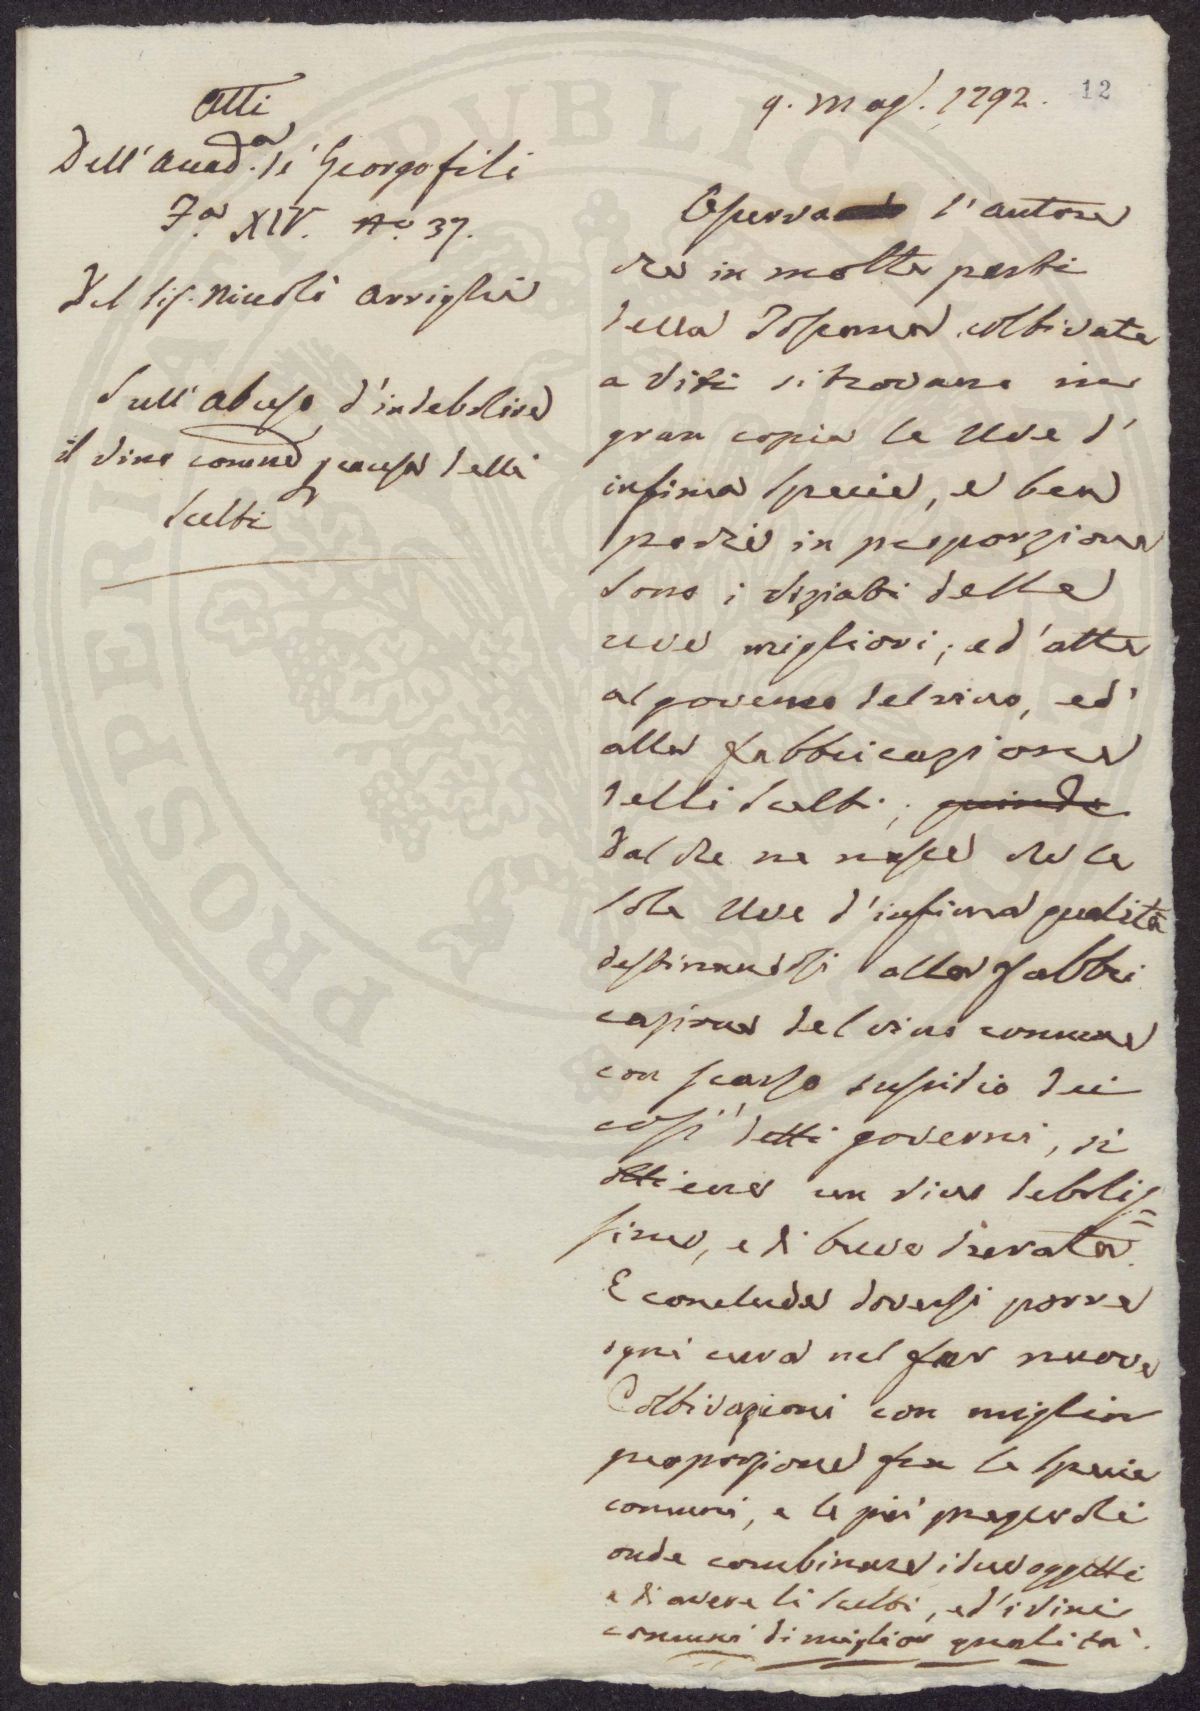 Atti
Dell'Accad.a de' Georgofili
Fa. XIV. No. 37.
Del Sig. Niccolò Arrighi
Sull'abuso d'indebolire
il vino comune a causa delli
Scelti
9. Mag. 1792. 12
Osserva l'autore
che in molte parti
della Toscana coltivate
a viti si trovano in
gran copia le Uve d'
infima specie, e ben
poche in proporzione
sono i viziati delle
uve migliori, ed'atte
al governo del vino, ed'
alla fabbricazione
delli Scelti; quindi
Dal che ne nasce che le
sole Uve d'infima qualità
destinandosi alla fabbri
cazione del vino comune
con scarso sussidio dei
così detti governi, si
ottiene un vino debolis=
simo, e di breve durata.
E conclude doversi porre
ogni cura nel far nuove
Coltivazioni con miglior
proporzione fra le specie
comuni, e le più pregevoli
onde combinare i due oggetti
e di avere li Scelti, ed'i vini
comuni di miglior qualità.
PROSPERITATI PUBLICAE